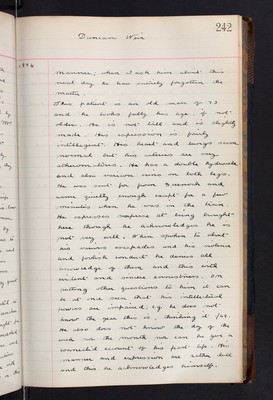 242
Duncan Weir
1896
manner; when I ask him about this
next day he has entirely forgotten the
matter.
This patient is an old man of 73
and he looks fully his age if not
older. He is not tall and is slightly
made. His expression is fairly
intelligent. His heart and lungs seem
normal but his arteries are very
atheromatous. He has a double hydrocele
and also varicose veins on both legs.
He was sent for from Greenock and
came quietly enough except for a few
minutes when he was in the train.
He expresses surprise at being brought
here though he acknowledges he is
not very well. When spoken to about
his various escapades and his violence
and foolish conduct he denies all
knowledge of them, and this with
evident and sincere earnestness. On
putting other questions to him it can
be at once seen that his intellectual
powers are impaired, eg he does not
know the year this is, thinking it
He also does not know the day of the
week nor the month nor can he give a
connected account of his past life. His
manner and expression are rather dull
and this he acknowledges himself.